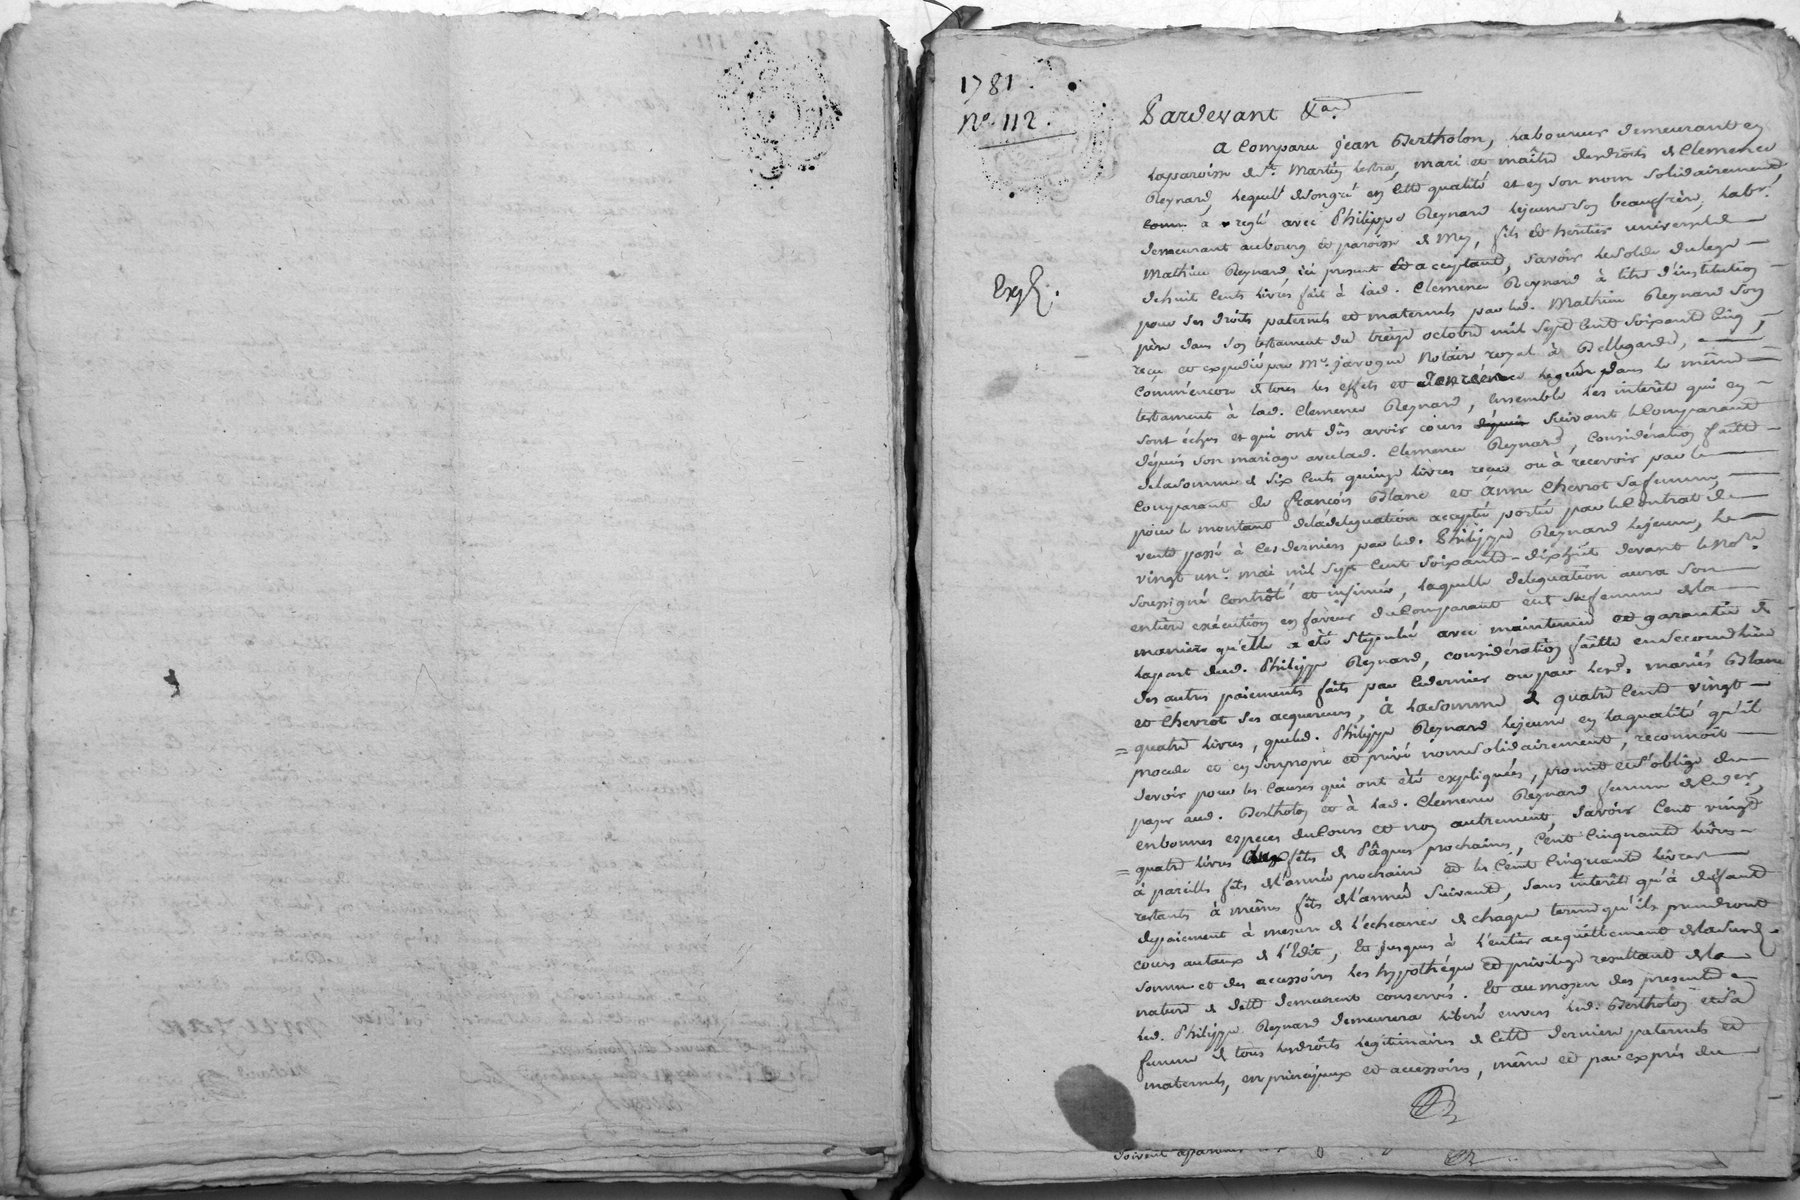 1781.
N.º 112.
Expé.
Pardevant &a.
a Comparu Jean Bertholon, Laboureur demeurant en
laparoisse de St. Martin lestra, mari et maître des droits de Clemence
Reynard, lequel de son gré en cette qualité et en son nom solidairement,
a reglé avec Philippe Reynard lejeune son beaufrère, Labr.
demeurant aubourg et paroisse de , fils et heritier universel de
Mathieu Reynard ici present et acceptant, savoir le solde du legs
de huit Cents livres fait à lad. Clemence Reynard à titre d'institution
pour ses droits paternels et maternels par led. Mathieu Reynard son
père dans son testament du treize octobre mil sept Cent Soixante Cinq,
reçu et expedié par Me. Javogue Notaire royal à Bellegarde,
Comm'encore de tous les effets et denrées legués dans le même
testament à lad. Clemence Reynard, ensemble les interêts qui en
sont échus et qui ont dûs avoir cours depuis suivant le Comparant
dépuis son mariage avec lad. Clemence Reynard, Considération faitte
de la somme de Six Cents quinze livres reçue ou à recevoir par le
Comparant de françois Blanc et Anne Chevrot sa femme,
pour le montant de la déléguation acceptée portée par le Contrat de
vente passé à ces derniers par led. Philippe Reynard lejeune, le
vingt un mai mil sept Cent Soixante-dixhuit devant le Nore.
soussigné Contrôlé et insinué, laquelle deleguation aura son
entière exécution en faveur du Comparant et sa femme de la
maniere qu'elle a été stipulée avec maintenue et garantie de
lapart dud. Philippe Reynard, considération faitte en second lieu
des autres paiements faits par cedernier ou par lesd. mariés Blanc
et Chevrot ses acquereurs, à la somme de quatre Cent vingt
= quatre livres, que led. Philippe Reynard lejeune en la qualité qu'il
procede et en son propre et privé nom solidairement, reconnoit
devoir pour les Causes qui ont été expliquées, promet et s'oblige de
payer aud. Bertholon et à lad. Clemence Reynard femme de ce der.,
en bonnes espèces du Cours et non autrement, Savoir Cent vingt
= quatre livres aux fêtes de Pâques prochaines, Cent Cinquante livres
à pareille fête de l'année prochaine et les Cent Cinquante livres
restants à même fête de l'année Suivante, sans interêt qu'à défaut
depaiement à mesure de l'écheance de chaque terme qu'ils prendront
cours au taux de l'Edit, et jusques à l'entier acquittement de la susd.
somme et des accessoires les hypothéque et privilege resultant de la
nature de dette demeurent conservés. Et au moyen des presentes
led. Philippe Reynard demeurera liberé envers led. Bertholon et sa
femme de tous les droits legitimaires de cette derniere paternels et
maternels, en principaux et accessoires, même et par exprès du